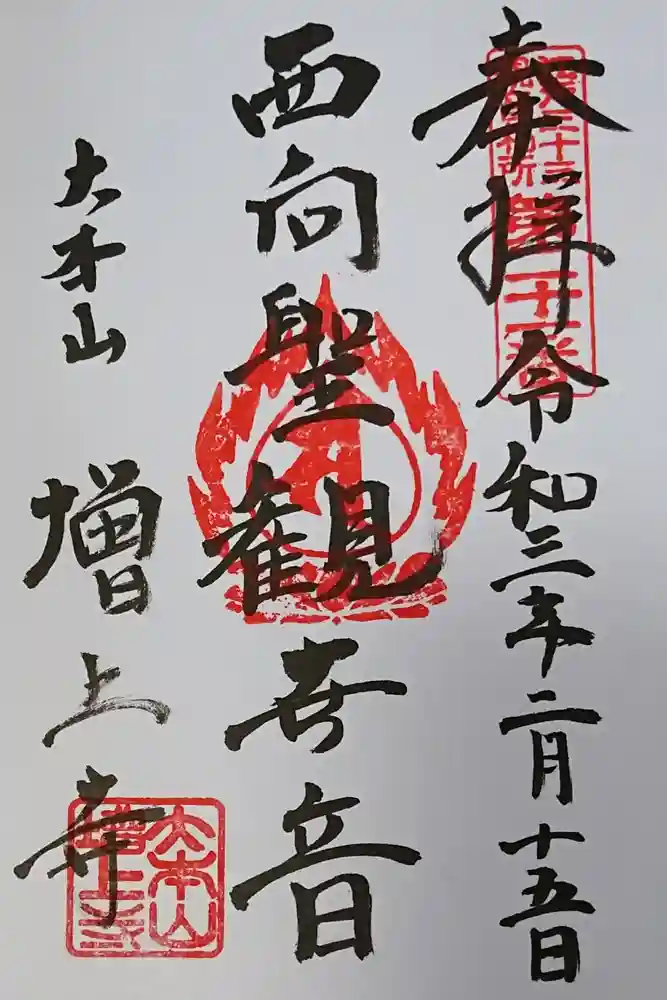 奉拝 令和三年二月十五日
西向聖観世音
大本山 増上寺
大本山
増上寺